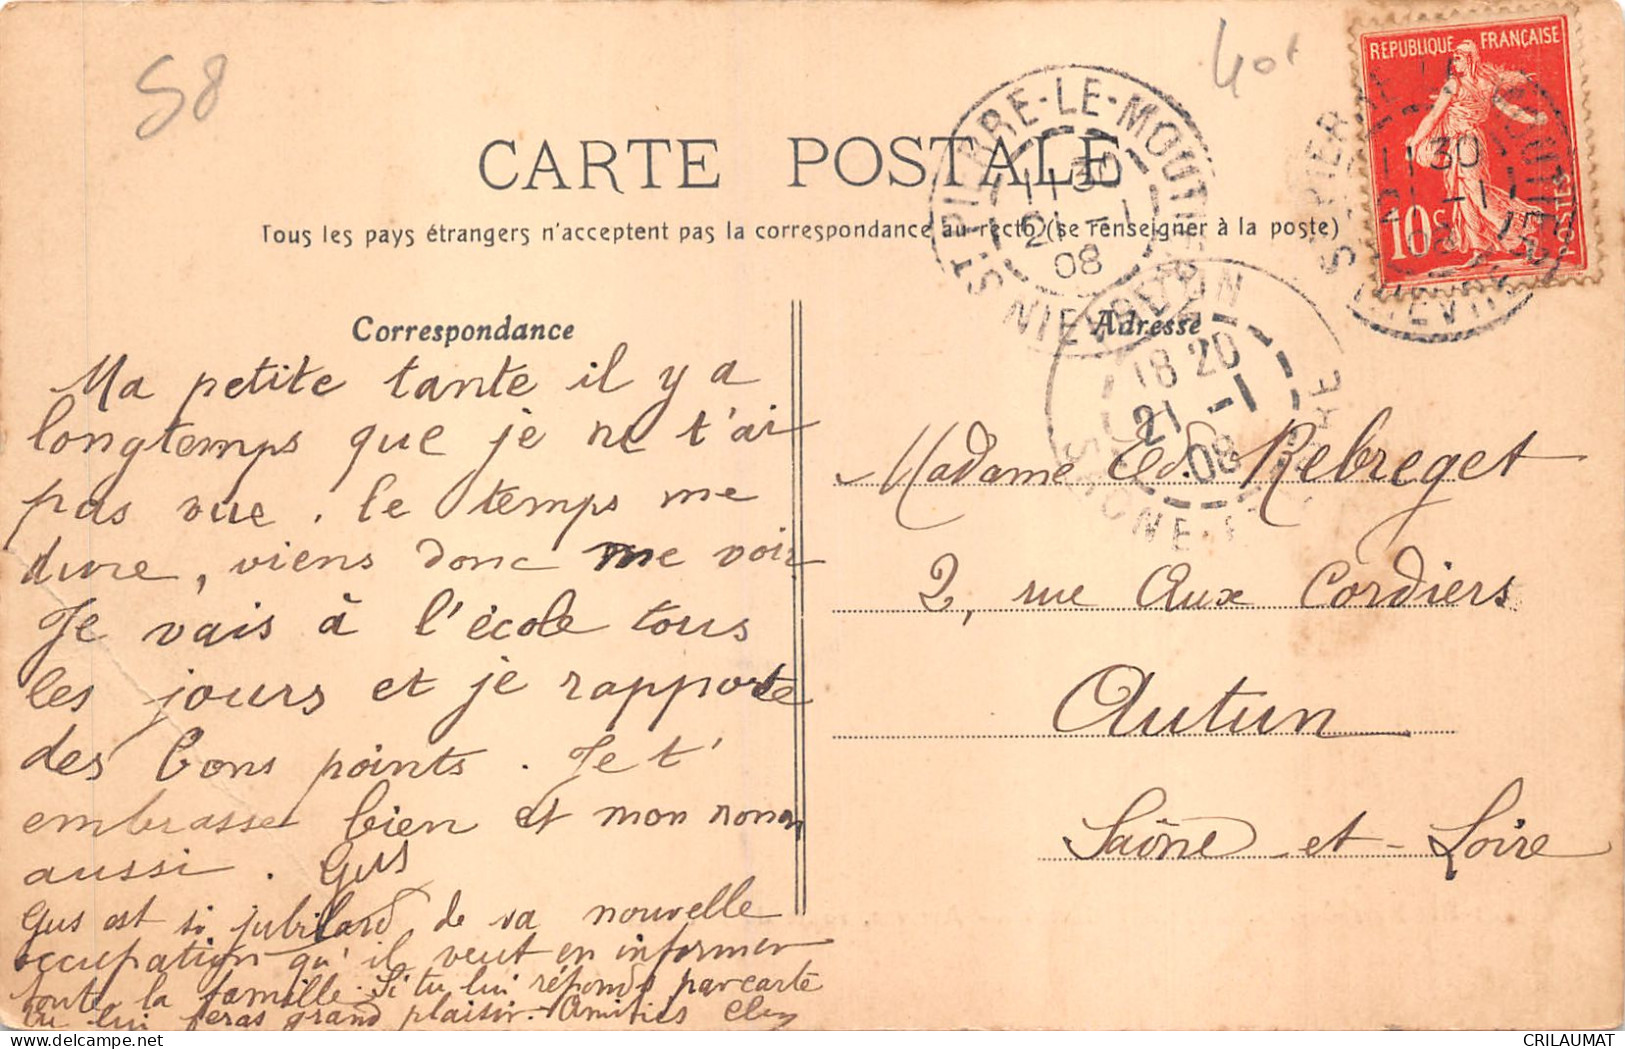 58
40f
REPUBLIQUE FRANÇAISE
10c
POSTES
ST PIERRE-LE-MOUTIER
11 30
21 -1
08
NIEVRE
CARTE POSTALE
Tous les pays étrangers n'acceptent pas la correspondance au recto (se renseigner à la poste)
Correspondance
Adresse
18 20
21 -1
08
SAONE-ET-LOIRE
Ma petite tante il y a
longtemps que je ne t'ai
pas vue. le temps me
dure, viens donc me voir
Je vais à l'école tous
les jours et je rapporte
des bons points. Je t'
embrasse bien et mon nonon
aussi. Gus
Gus est si jubilard de sa nouvelle
occupation qu'il veut en informer
toute la famille. Si tu lui réponds par carte
tu lui feras grand plaisir. - Amitiés
Madame Ed. Rebreget
2, rue Aux Cordiers
Autun
Saône-et-Loire
CRILAUMAT